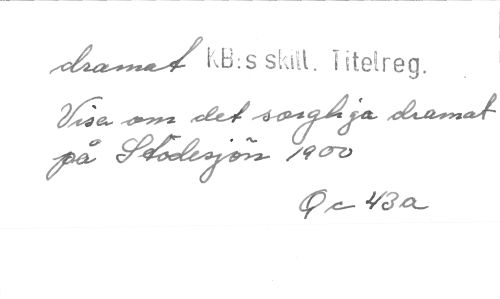 dramat KB:s skill. Titelreg.
Visa om det sorgliga dramat
på Stödesjön 1900
Qc 43a